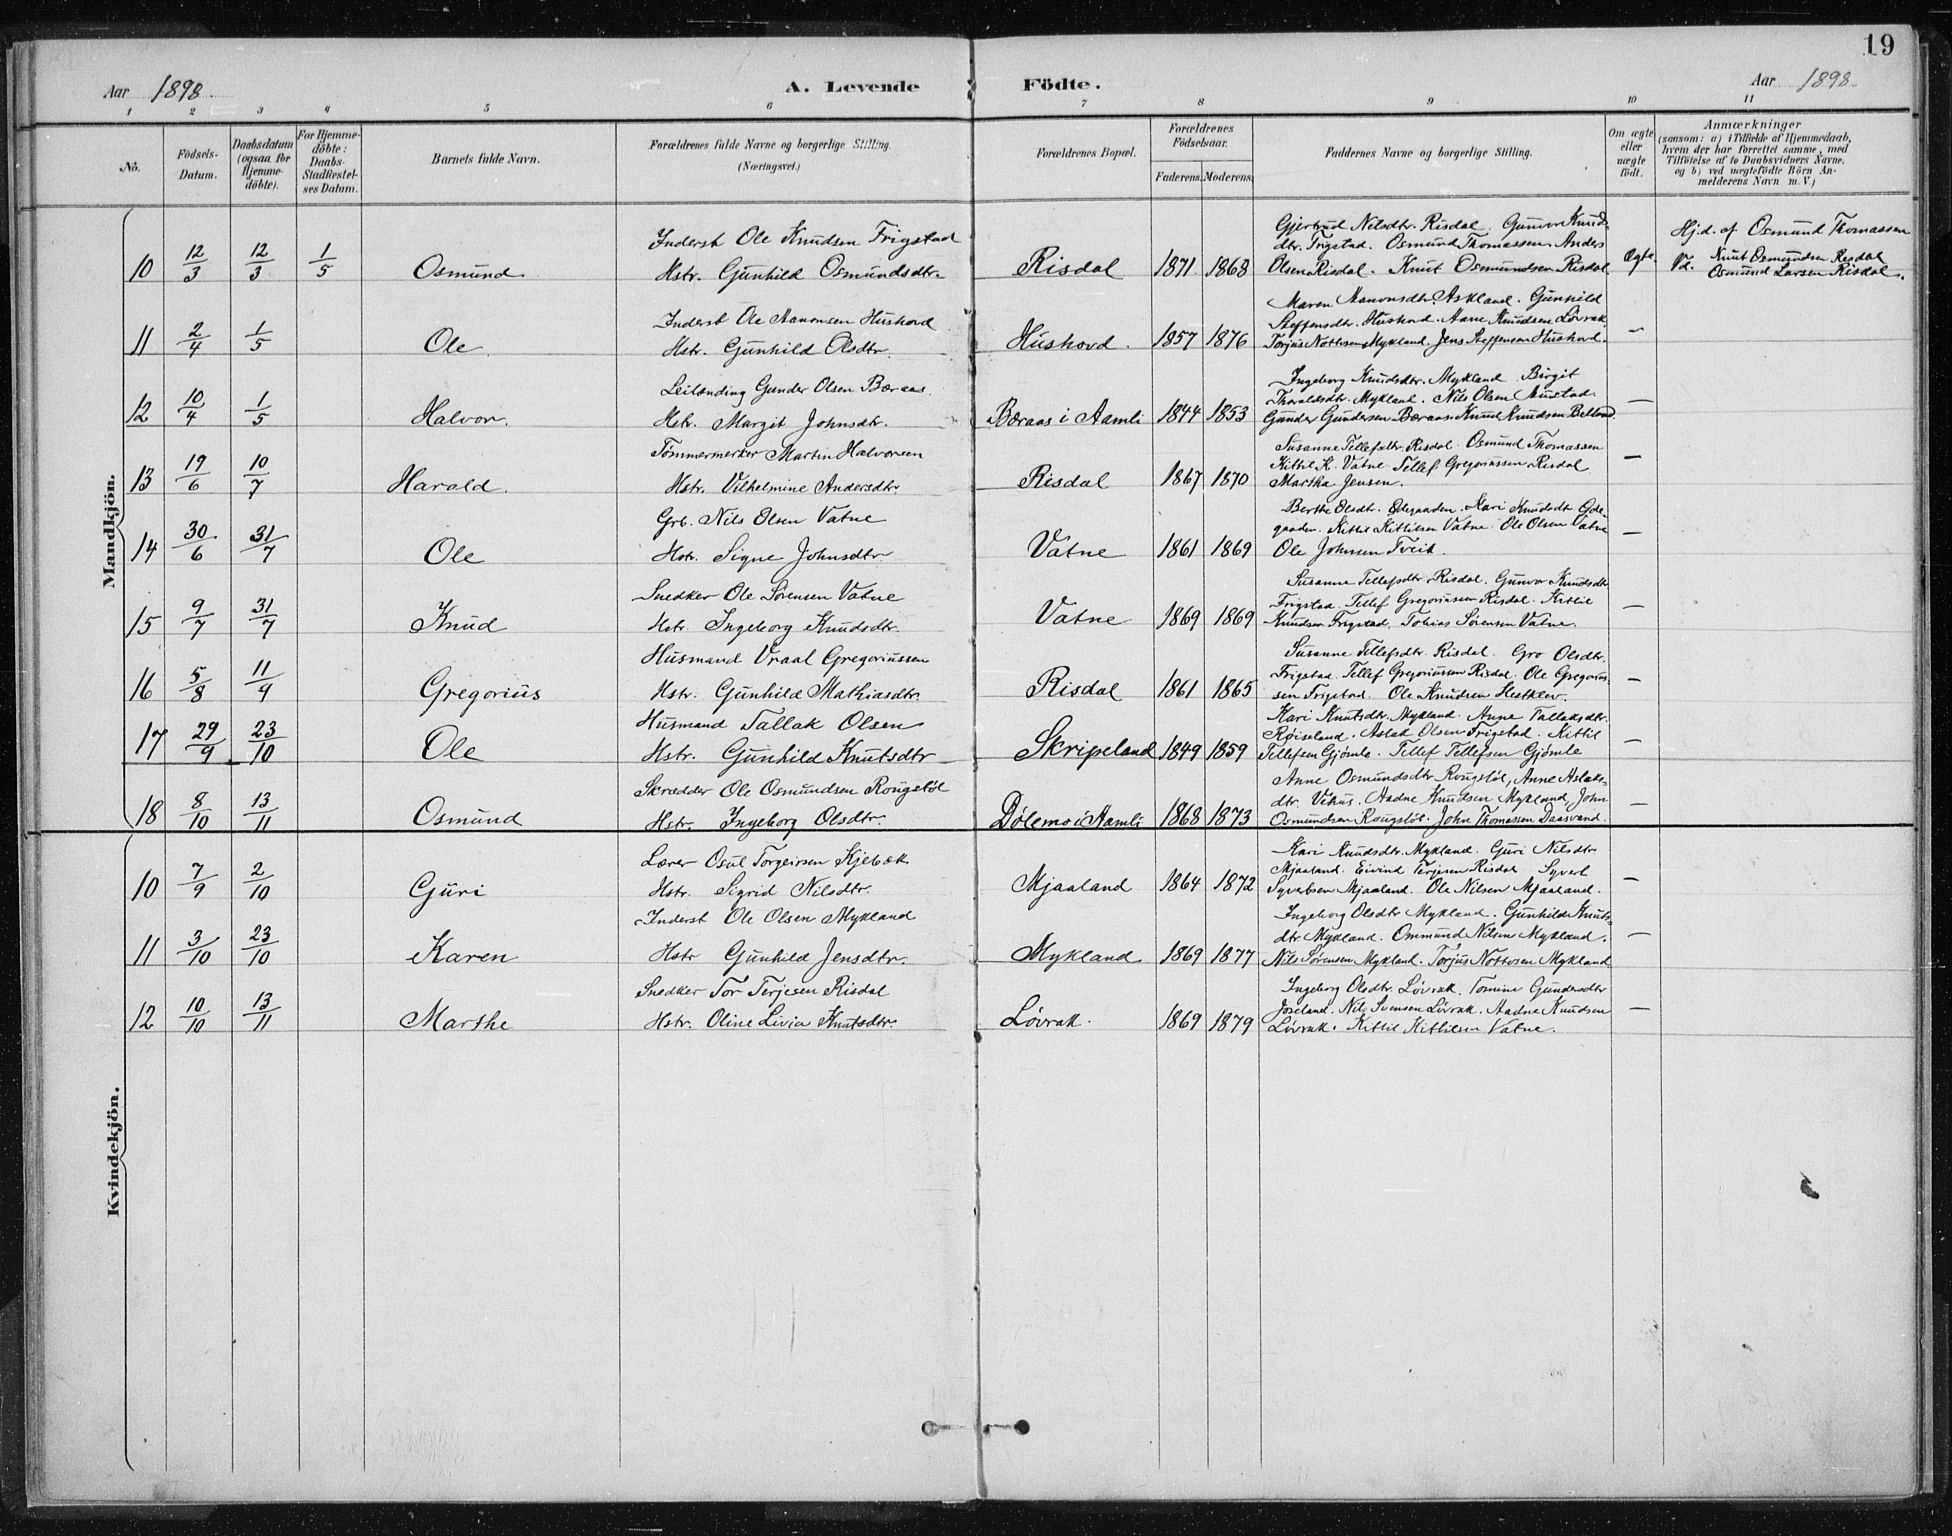 19
Aar 1898.
A. Levende Födte.
Aar 1898.
1 2 3 4 5 6 7 8 9 10 11
No.
Födsels-Datum.
Daabsdatum (ogsaa for Hjemme-döbte).
For Hjemme-döbte: Daabs-Stadfæstel-ses Datum.
Barnets fulde Navn.
Forældrenes fulde Navne og borgerlige Stilling. (Næringsvei.)
Forældrenes Bopæl.
Forældrenes Födselsaar.
Faderens. Moderens.
Faddernes Navne og borgerlige Stilling.
Om ægte eller uægte födt.
Anmærkninger
(saasom: a) i Tilfælde af Hjemmedaab,
hvem der har forrettet samme, med
Tilföielse af to Daabsvidners Navne,
og b) ved uægtefödte Börn An-
melderens Navn m. V.)
Mandkjön.
10 12/3 12/3 1/5 Osmund
Inderst Ole Knudsen Frigstad
Hstr. Gunhild Osmundsdtr.
Risdal 1871 1868
Gjertrud Nilsdtr Risdal. Gunvor Knuds-
dtr. Frigstad. Osmund Thomassen. Anders
Olsen Risdal. Knut Osmundsen Risdal.
Ægte.
Hjd. af Osmund Thomassen
Vd. Knut Osmundsen Risdal
Osmund Larsen Risdal.
11 2/4 1/5 Ole
Inderst Ole Aanonsen Hushovd
Hstr. Gunhild Olsdtr.
Hushovd. 1857 1876
Maren Aanonsdtr. Askland. Gunhild
Steffensdtr. Hushovd. Aane Knudsen Lövrak.
Torjus Nottosen Mykland. Jens Steffensen Hushovd.
—
12 10/4 1/5 Halvor.
Leilænding Gunder Olsen Bæraas.
Hstr. Margit Johnsdtr.
Bæraas i Aamli 1844 1853
Ingeborg Knudsdtr. Mykland Birgit
Thoraldsdtr. Mykland. Nils Olsen
Gunder Gundersen Bæraas. Knud Knudsen
—
13 19/6 10/7 Harald.
Tömmermerker Martin Halvorsen
Hstr. Vilhelmine Andersdtr.
Risdal 1867 1870
Susanne Tellefsdtr. Risdal. Osmund Thomassen
Kittil K. Vatne. Tellef Gregoriussen Risdal
Martha Jensen.
—
14 30/6 31/7 Ole
Grb. Nils Olsen Vatne
Hstr. Signe Johnsdtr.
Vatne 1861 1869
Berthe Olsdtr. Ödegaarden. Kari Knudsdtr Öde-
gaarden. Kittil Kittilsen Vatne. Ole Olsen Vatne
Ole Johnsen Tveit.
—
15 9/7 31/7 Knud
Snedker Ole Sörensen Vatne
Hstr. Ingeborg Knudsdtr.
Vatne 1869 1869
Susanne Tellefsdtr. Risdal. Gunvor Knudsdtr
Frigstad. Tellef Gregoriussen Risdal. Kittil
Knudsen Frigstad. Tobias Sörensen Vatne.
—
16 5/8 11/9 Gregorius
Husmand Vraal Gregoriussen
Hstr. Gunhild Mathiasdtr.
Risdal 1861 1865
Susanne Tellefsdtr. Risdal. Gro Olsdtr.
Frigstad. Tellef Gregoriussen Risdal. Ole Gregorius-
sen Frigstad. Ole Knudsen Hestklev.
—
17 29/9 23/10 Ole
Husmand Tallak Olsen
Hstr. Gunhild Knutsdtr
Skripeland 1849 1859
Kari Knutsdtr. Mykland. Anne Tallaksdtr.
Röiseland. Aslak Olsen Frigstad. Kittil
Tellefsen Gjömle. Tellef Tellefsen Gjömle
—
18 8/10 13/11 Osmund
Skrædder Ole Osmundsen Rougstöl
Hstr. Ingeborg Olsdtr.
Dölemo i Aamli 1868 1873
Anne Osmundsdtr Rougstöl, Anne Aslaks-
dtr. Vehus. Aadne Knudsen Mykland, John
Osmundsen Rougstöl. John Thomassen Daasvand.
—
Kvindekjön.
10 7/9 2/10 Guri
Lærer Osul Torgeirsen Kjebæk
Hstr. Sigrid Nilsdtr.
Mjaaland 1864 1872
Kari Knudsdtr. Mykland. Guri Nilsdtr
Mjaaland. Eivind Terjesen Risdal Syvert
Syvertsen Mjaaland. Ole Nilsen Mjaaland.
—
11 3/10 23/10 Karen
Inderst Ole Olsen Mykland
Hstr Gunhild Jensdtr.
Mykland 1869 1877
Ingeborg Olsdtr Mykland. Gunhilde Knuts-
dtr. Mykland. Ommund Nilsen Mykland.
Nils Sörensen Mykland. Torjus Nottosen Mykland
—
12 10/10 13/11 Marthe
Snedker Tor Terjesen Risdal
Hstr. Oline Livia Knutsdtr.
Lövrak. 1869 1879
Ingeborg Olsdtr. Lövrak. Tomine Gundersdtr
Joreland. Nils Svensen Lövrak. Aadne Knudsen
Lövrak. Kittil Kittilsen Vatne.
—